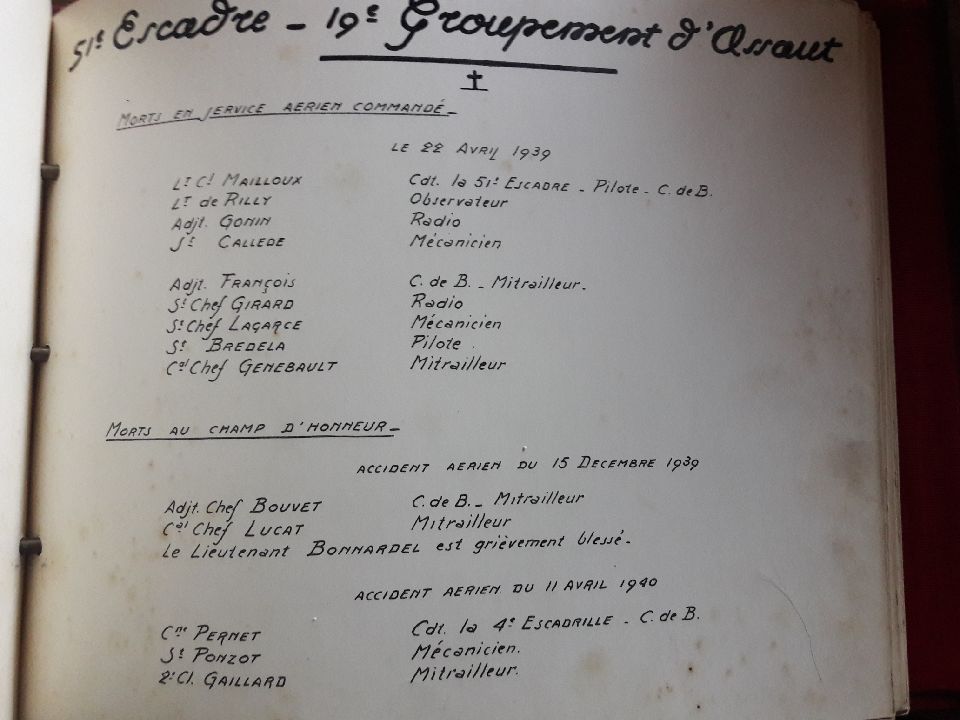 51e Escadre - 19e Groupement d'Assaut
MORTS EN SERVICE AERIEN COMMANDÉ -
LE 22 AVRIL 1939
Lt Cl MAILLOUX Cdt. la 51e ESCADRE - Pilote - C. de B.
Lt de RILLY Observateur
Adjt. GONIN Radio
St CALLEDE Mécanicien
Adjt. FRANÇOIS C. de B. - Mitrailleur.
St Chef GIRARD Radio
St Chef LAGARCE Mécanicien
St BREDELA Pilote.
Cal Chef GENEBAULT Mitrailleur
MORTS AU CHAMP D'HONNEUR -
ACCIDENT AERIEN DU 15 DECEMBRE 1939
Adjt. Chef BOUVET C. de B. - Mitrailleur
Cal Chef LUCAT Mitrailleur
Le Lieutenant BONNARDEL est grièvement blessé.
ACCIDENT AERIEN DU 11 AVRIL 1940
Cne PERNET Cdt. la 4e ESCADRILLE - C. de B.
St PONZOT Mécanicien.
2e Cl. GAILLARD Mitrailleur.